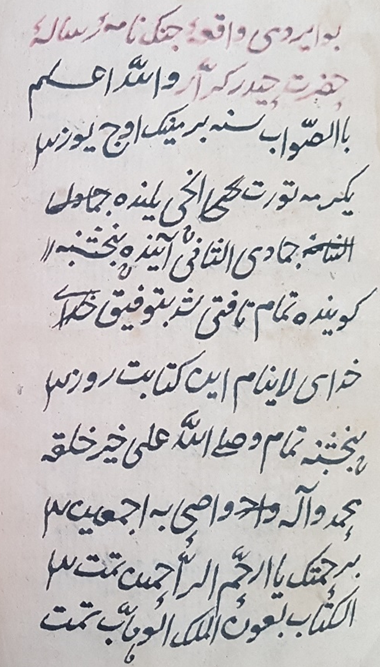 بو ایردی واقعهٔ جنک نامهٔ رسالهٔ
حضرت حیدر کرّار والله اعلم
باالصّواب سنه بر مینک اوج یوز
یکرمه تورت نحی یلنده جمادی
الثانی جمادی الثانی آینده پنجشنبه
کوینده تمام تافتی شد بتوفیق خدای
خدای لاینام این کتابت روز
پنجشنبه تمام وصلی الله علی خیر خلقه
محمد وآله واصحابه اجمعین
برحمتک یا ارحّم الرّاحمین تمت
الکتاب بعون الملک الوهاب تمت